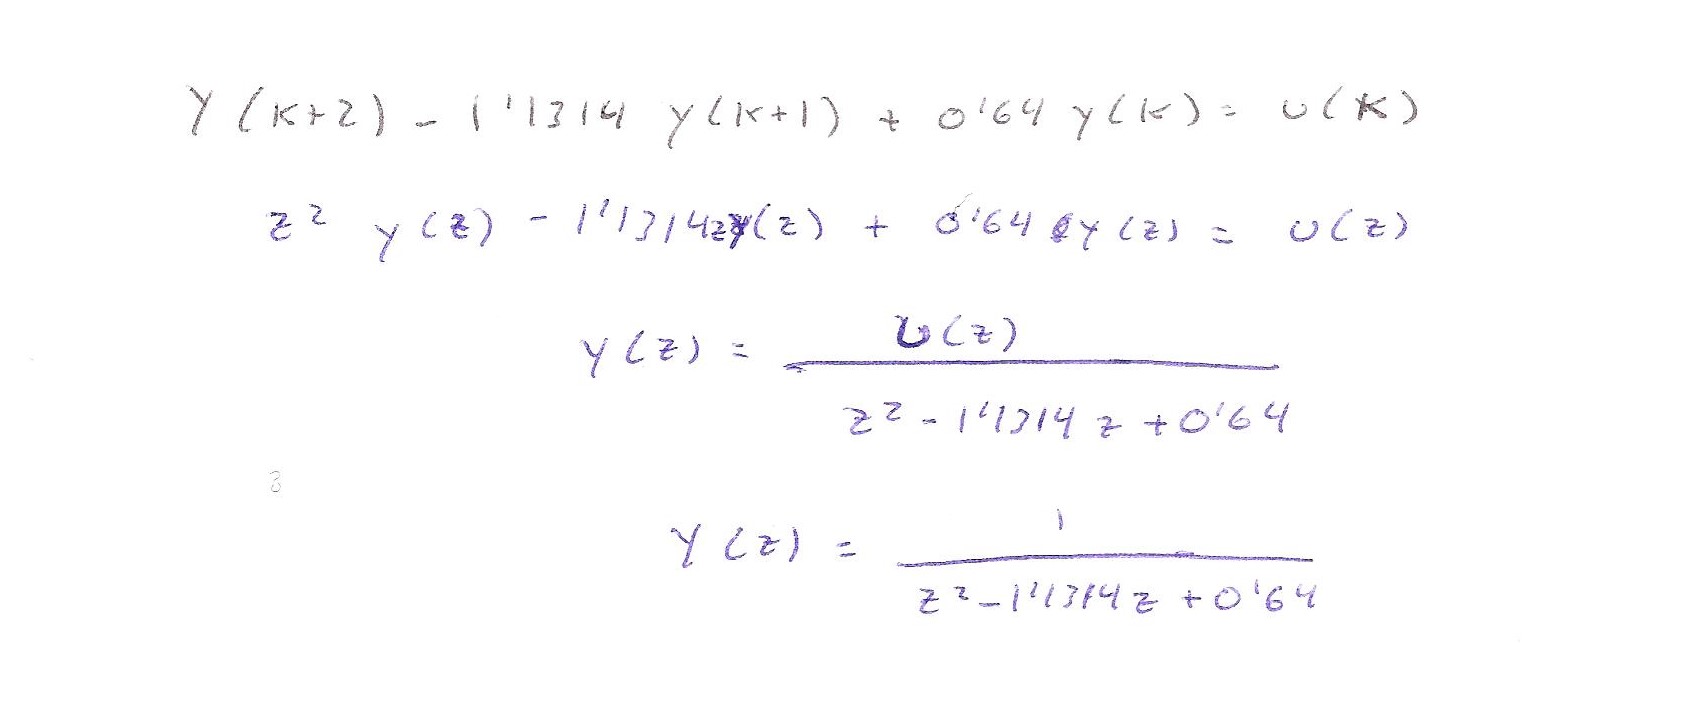 y(k+2) - 1'1314 y(k+1) + 0'64 y(k) = u(k)
z² y(z) - 1'1314 z y(z) + 0'64 y(z) = u(z)
y(z) = U(z) / z² - 1'1314 z + 0'64
y(z) = 1 / z² - 1'1314 z + 0'64